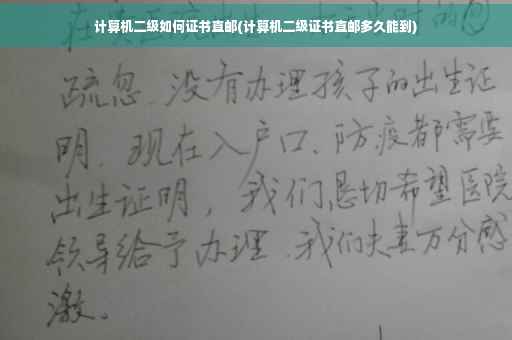 计算机二级如何证书直邮(计算机二级证书直邮多久能到)
疏忽.没有办理孩子的出生证
明.现在入户口、防疫都需要
出生证明，我们恳切希望医院
领导给予办理.我们夫妻万分感
激。